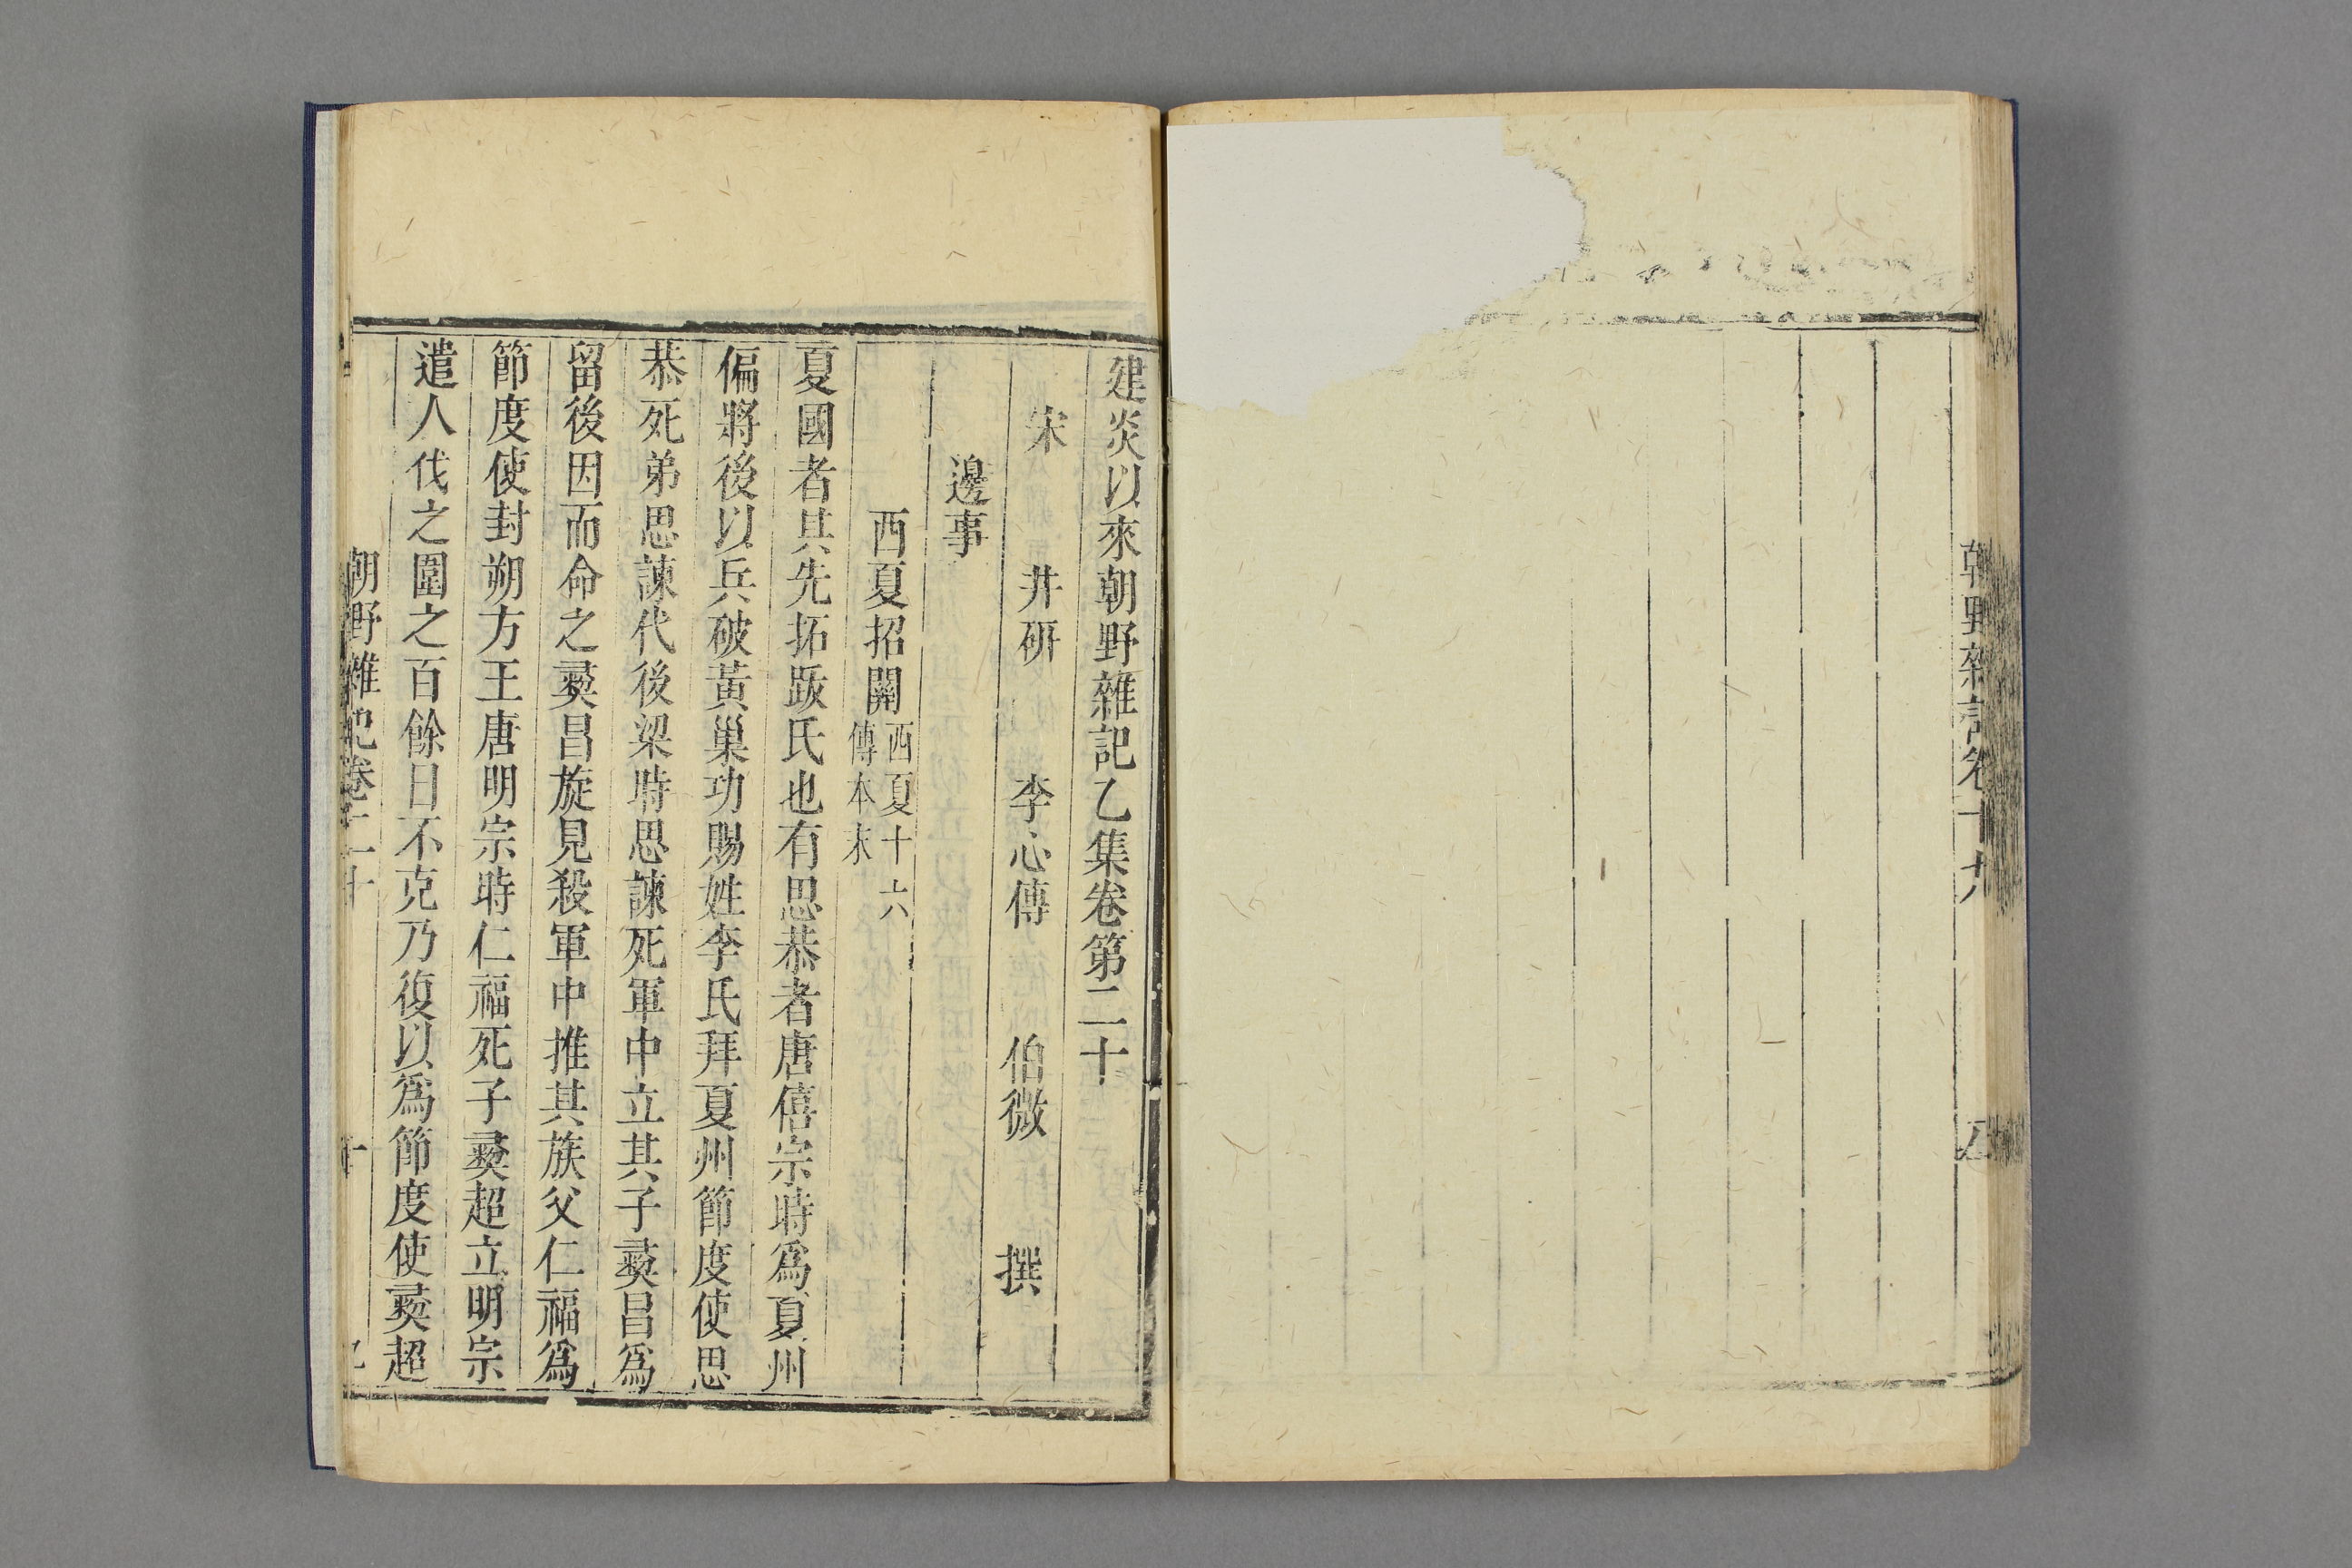 朝野雜記卷十九
建炎以來朝野雜記乙集卷第二十
宋 井研 李心傳 伯微 撰
邊事
西夏招關西夏十六傳本末
夏國者其先拓跋氏也有思恭者唐僖宗時爲夏州
偏將後以兵破黃巢功賜姓李氏拜夏州節度使思
恭死弟思諫代後梁時思諫死軍中立其子彝昌爲
留後因而命之彝昌旋見殺軍中推其族父仁福爲
節度使封朔方王唐明宗時仁福死子彝超立明宗
遣人伐之圍之百餘日不克乃復以爲節度使彝超
朝野雜記卷二十